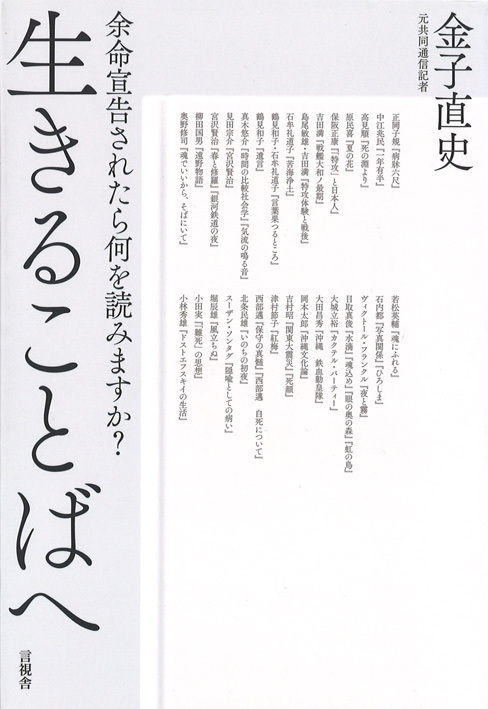 金子直史
元共同通信記者
正岡子規『病牀六尺』
中江兆民『一年有半』
高見順『死の淵より』
原民喜『夏の花』
保阪正康『「特攻」と日本人』
吉田満『戦艦大和ノ最期』
島尾敏雄・吉田満『特攻体験と戦後』
石牟礼道子『苦海浄土』
鶴見和子・石牟礼道子『言葉果つるところ』
鶴見和子『遺言』
真木悠介『時間の比較社会学』『気流の鳴る音』
見田宗介『宮沢賢治』
宮沢賢治『春と修羅』『銀河鉄道の夜』
柳田国男『遠野物語』
奥野修司『魂でいいから、そばにいて』
若松英輔『魂にふれる』
石内都『写真関係』『ひろしま』
ヴィクトール・フランクル『夜と霧』
目取真俊『水滴』『魂込め』『眼の奥の森』『虹の鳥』
大城立裕『カクテル・パーティー』
大田昌秀『沖縄 鉄血勤皇隊』
岡本太郎『沖縄文化論』
吉村昭『関東大震災』『死顔』
津村節子『紅梅』
西部邁『保守の真髄』『西部邁 自死について』
北条民雄『いのちの初夜』
スーザン・ソンタグ『隠喩としての病い』
堀辰雄『風立ちぬ』
小田実『「難死」の思想』
小林秀雄『ドストエフスキイの生活』
余命宣告されたら何を読みますか?
生きることばへ
言視舎